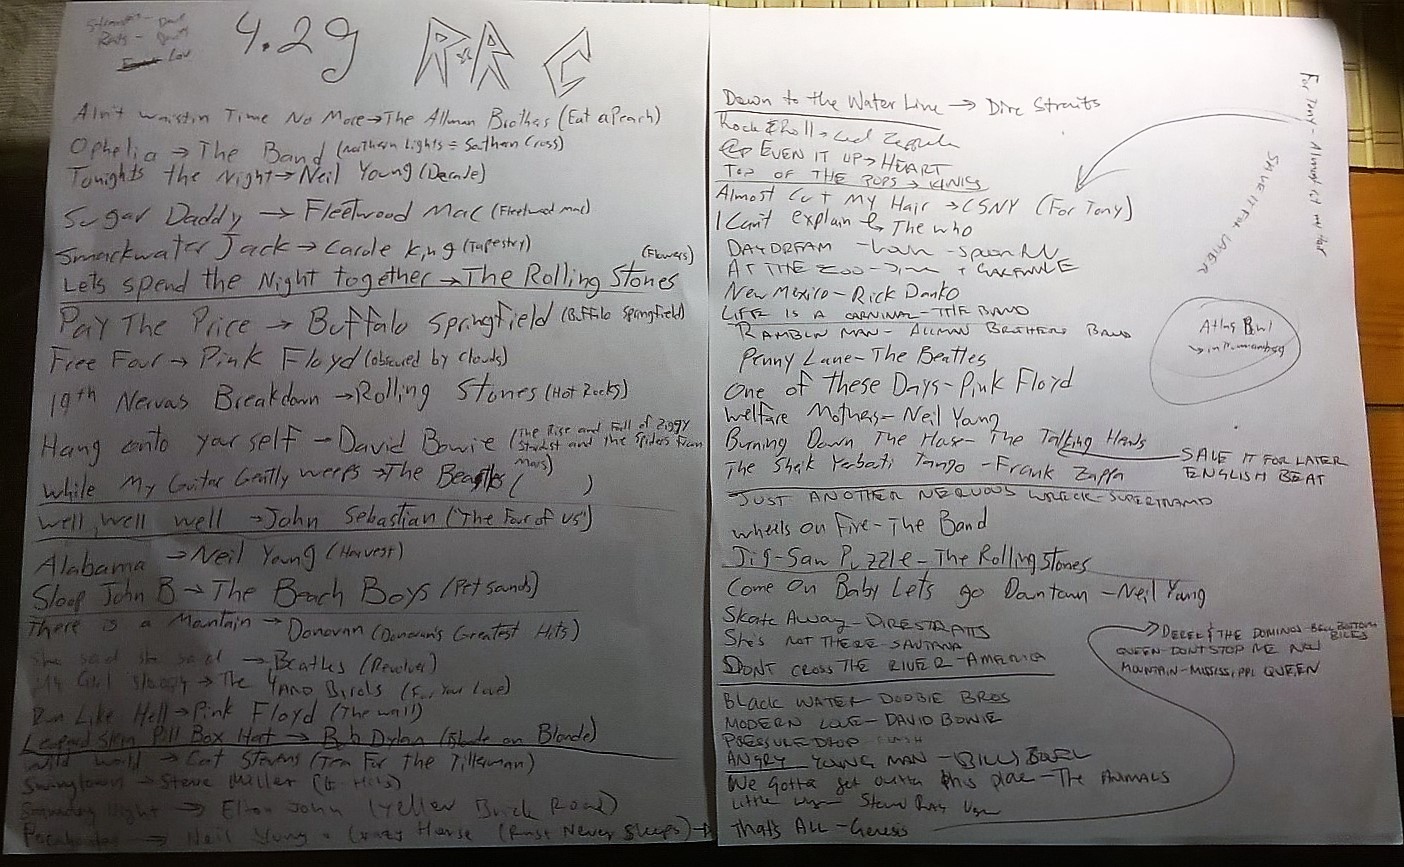 4.29 R&R C
Ain't waistin Time No More → The Allman Brothers (Eat a Peach)
Ophelia → The Band (Northern Lights = Southern Cross)
Tonights the Night → Neil Young (Decade)
Sugar Daddy → Fleetwood Mac (Fleetwood mac)
Smackwater Jack → Carole King (Tapestry)
Lets spend the Night together → The Rolling Stones (Flowers)
Pay The Price → Buffalo Springfield (Buffalo Springfield)
Free Four → Pink Floyd (obscured by clouds)
19th Nervas Breakdown → Rolling Stones (Hot Rocks)
Hang onto your self → David Bowie (The Rise and Fall of Ziggy Stardust and the Spiders from Mars)
While My Guitar Gently weeps → The Beatles ( )
Well, well well → John Sebastian ("The Four of Us")
Alabama → Neil Young (Harvest)
Sloop John B → The Beach Boys (Pet Sounds)
There is a Mountain → Donovan (Donovan's Greatest Hits)
She said she said → Beatles (Revolver)
My Girl Sloopy → The Yard Birds (For Your Love)
Run Like Hell → Pink Floyd (The wall)
Leopard Skin Pill Box Hat → Bob Dylan (Blonde on Blonde)
Wild world → Cat Stevens (Tea For the Tillerman)
Swingtown → Steve Miller (G. Hits)
Saturday Night → Elton John (Yellow Brick Road)
Pocahontas → Neil Young + Crazy Horse (Rust Never Sleeps) →
Down to the Water Line → Dire Straits
Rock & Roll → Led Zeppelin
EVEN IT UP → HEART
TOP OF THE POPS → KINKS
Almost Cut My Hair → CSNY (For Tony)
I Can't explain → The who
DAYDREAM - Lovin - Spoonful
AT THE ZOO - Simon + GARFUNKLE
New Mexico - Rick Danko
LIFE IS A CARNIVAL - THE BAND
RAMBLIN MAN - ALLMAN BROTHERS BAND
Penny Lane - The Beatles
One of These Days - Pink Floyd
Welfare Mothers - Neil Young
Burning Down The House - The Talking Heads
The Sheik Yerbouti Tango - Frank Zappa
JUST ANOTHER NERVOUS WRECK - SUPERTRAMP
Wheels on Fire - The Band
Jig-Saw Puzzle - The Rolling Stones
Come On Baby Lets go Downtown - Neil Young
Skate Away - DIRE STRAITS
She's NOT THERE - SANTANA
DONT CROSS THE RIVER - AMERICA
BLACK WATER - DOOBIE BROS
MODERN LOVE - DAVID BOWIE
PRESSURE DROP CLASH
ANGRY YOUNG MAN - BILLY JOEL
We Gotta get outta this place - The ANIMALS
Little Wing - Stevie Ray Vaughn
That's ALL - Genesis
For Tony - Almost cut my Hair
SAVE IT FOR LATER
SAVE IT FOR LATER
ENGLISH BEAT
DEREK & THE DOMINOS - BELL BOTTOM BLUES
QUEEN - DONT STOP ME NOW
MOUNTAIN - MISSISSIPPI QUEEN